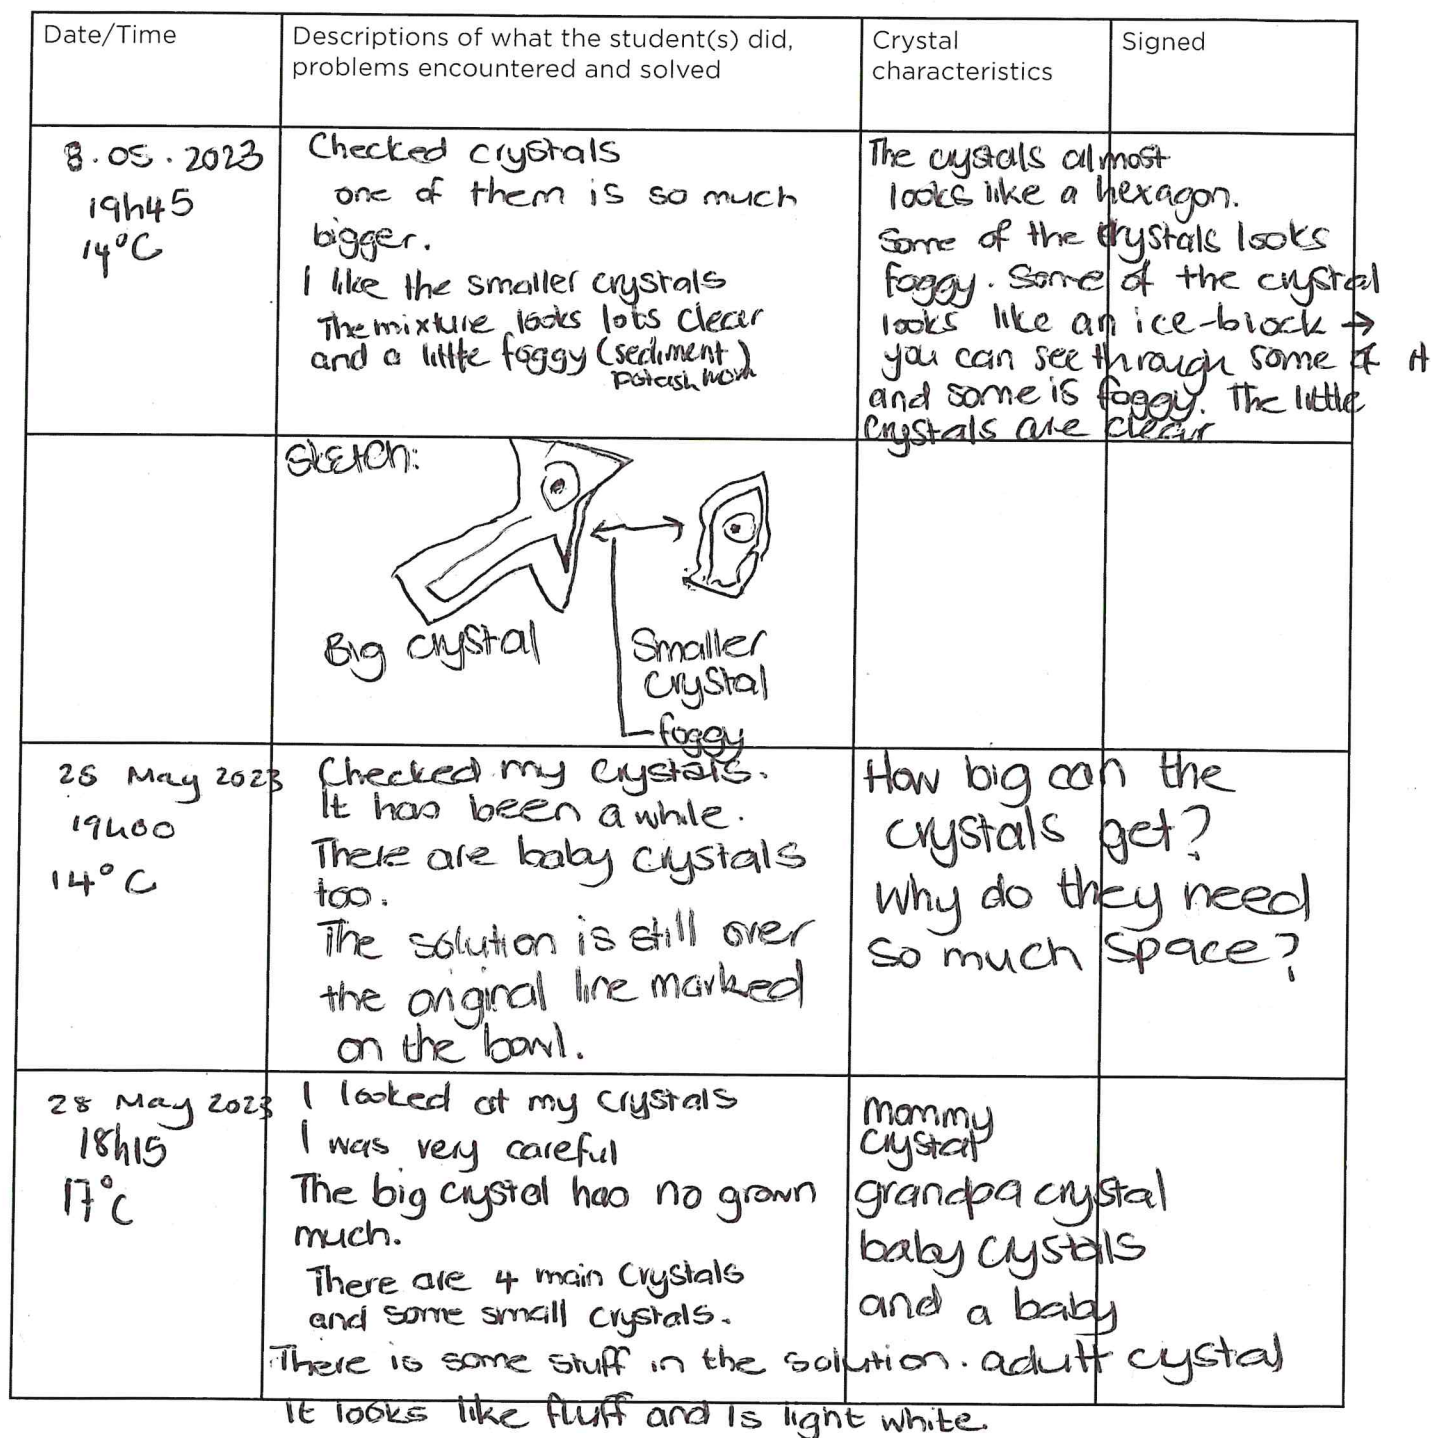 Date/Time
Descriptions of what the student(s) did,
problems encountered and solved
Crystal
characteristics
Signed
8.05.2023
19h45
14°C
Checked crystals
one of them is so much
bigger.
I like the smaller crystals
The mixture looks lots clear
and a little foggy (sediment)
The crystals almost
looks like a hexagon.
Some of the crystals looks
foggy. Some of the crystal
looks like an ice-block →
you can see through some of it
and some is foggy. The little
crystals are clear
Sketch:
Big crystal
Smaller
crystal
foggy
May 2023
19h00
14°C
Checked my crystals.
It has been a while.
There are baby crystals
too.
The solution is still over
the original line marked
on the bowl.
How big can the
crystals get?
Why do they need
so much space?
28 May 2023
18h15
17°C
I looked at my crystals
I was very careful
The big crystal has no grown
much.
There are 4 main Crystals
and some small crystals.
There is some stuff in the solution.
It looks like fluff and is light white.
mommy
crystal
grandpa crystal
baby crystals
and a baby
adult crystal